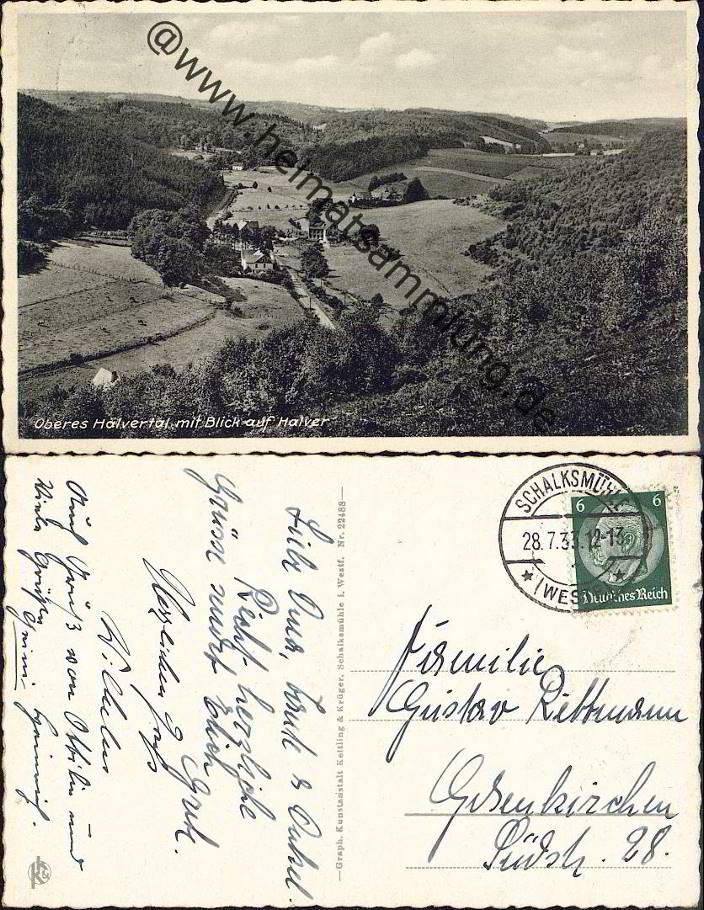 @www.heimatsammlung.de
Oberes Hälvertal mit Blick auf Halver
Liebe Oma, Tante & Onkel.
Recht herzliche
Grüsse sendet Euch
Herzlichen Gruß
Wilhelm
Auch Grüß von Ottilie und
Viele Grüße
Graph. Kunstanstalt Kettling & Krüger, Schalksmühle i. Westf. Nr. 22488
SCHALKSMÜHLE
28.7.33.12-13
(WES
6 6
Deutsches Reich
Familie
Gustav Rittmann
Gelsenkirchen
Südstr. 28.